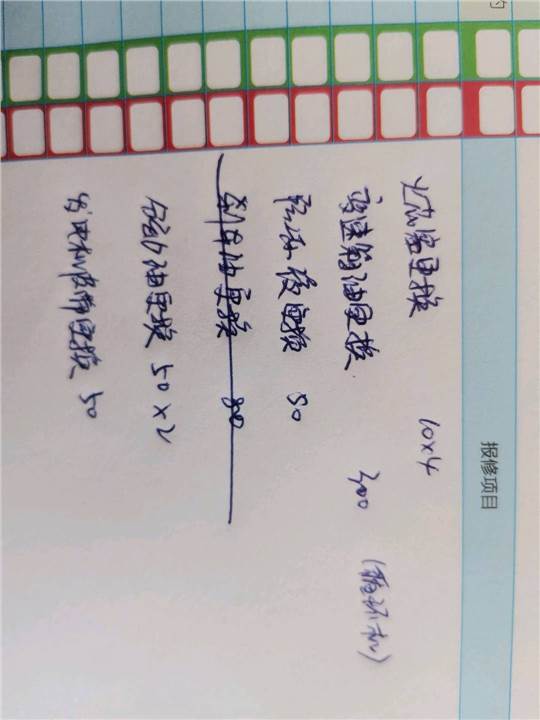 报修项目
火花塞更换 10×4
变速箱油更换 300 (循环机)
雨刮片更换 50
刹车油更换 80
分动油更换 50×2
发电机皮带更换 50